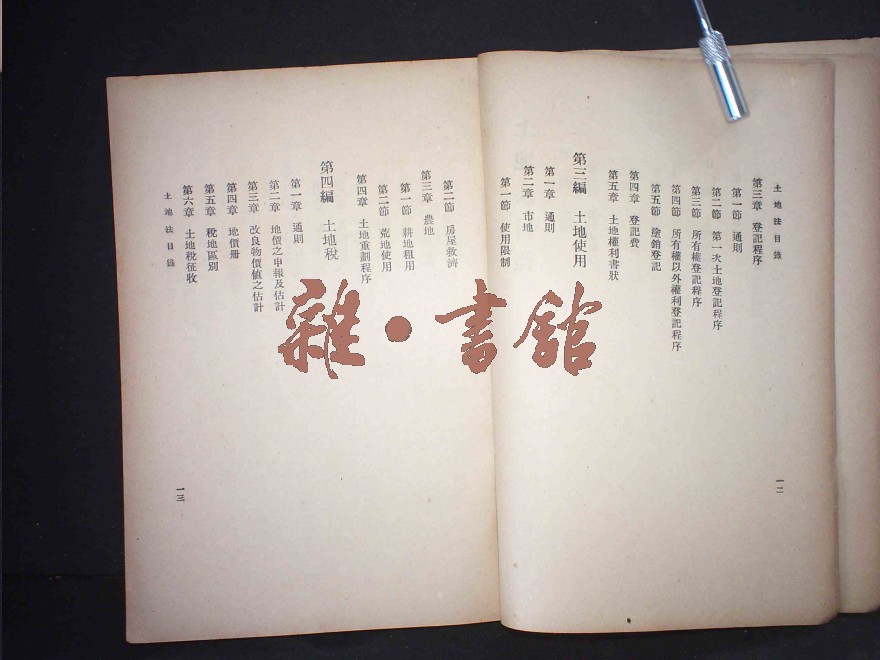 土地法目錄
第三章 登記程序
第一節 通則
第二節 第一次土地登記程序
第三節 所有權登記程序
第四節 所有權以外權利登記程序
第五節 塗銷登記
第四章 登記費
第五章 土地權利書狀
第三編 土地使用
第一章 通則
第二章 市地
第一節 使用限制
一二
第二節 房屋救濟
第三章 農地
第一節 耕地租用
第二節 荒地使用
第四章 土地重劃程序
第四編 土地稅
第一章 通則
第二章 地價之申報及估計
第三章 改良物價値之估計
第四章 地價冊
第五章 稅地區別
第六章 土地稅征收
土地法目錄
一三
雜·書館